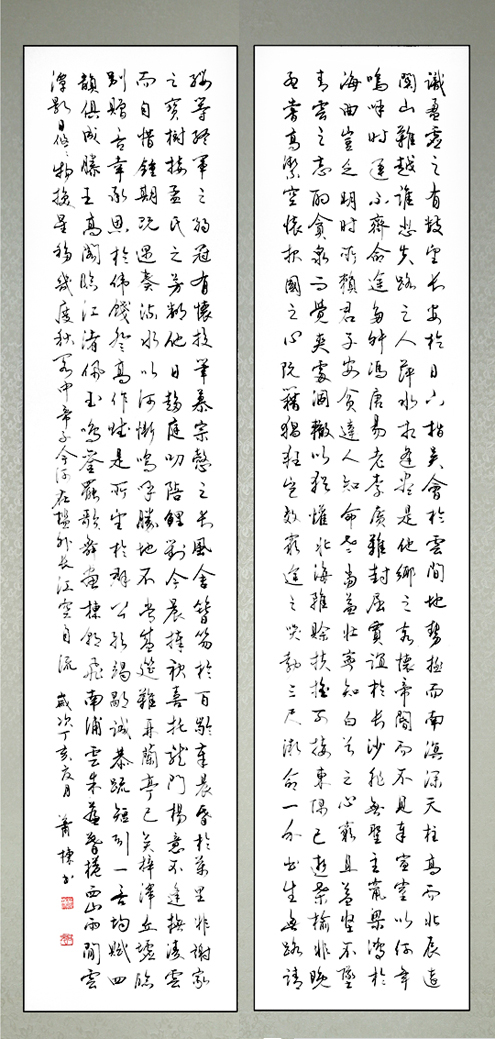 識盈虛之有數望長安於日下指吳會於雲間地勢極而南溟深天柱高而北辰遠
關山難越誰悲失路之人萍水相逢盡是他鄉之客懷帝閽而不見奉宣室以何年
嗚呼時運不齊命途多舛馮唐易老李廣難封屈賈誼於長沙非無聖主竄梁鴻於
海曲豈乏明時所賴君子安貧達人知命老當益壯寧知白首之心窮且益堅不墜
青雲之志酌貪泉而覺爽處涸轍以猶懽北海雖賒扶搖可接東隅已逝桑榆非晚
孟嘗高潔空懷報國之心阮籍猖狂豈效窮途之哭勃三尺微命一介書生無路請
纓等終軍之弱冠有懷投筆慕宗愨之長風舍簪笏於百齡奉晨昏於萬里非謝家
之寶樹接孟氏之芳鄰他日趨庭叨陪鯉對今晨捧袂喜托龍門楊意不逢撫凌雲
而自惜鍾期既遇奏流水以何慚嗚呼勝地不常盛筵難再蘭亭已矣梓澤丘墟臨
別贈言幸承恩於偉餞登高作賦是所望於群公敢竭鄙誠恭疏短引一言均賦四
韻俱成滕王高閣臨江渚佩玉鳴鸞罷歌舞畫棟朝飛南浦雲朱簾暮捲西山雨閒雲
潭影日悠々物換星移幾度秋閣中帝子今何在檻外長江空自流 歲次丁亥夏月 蕭棟書